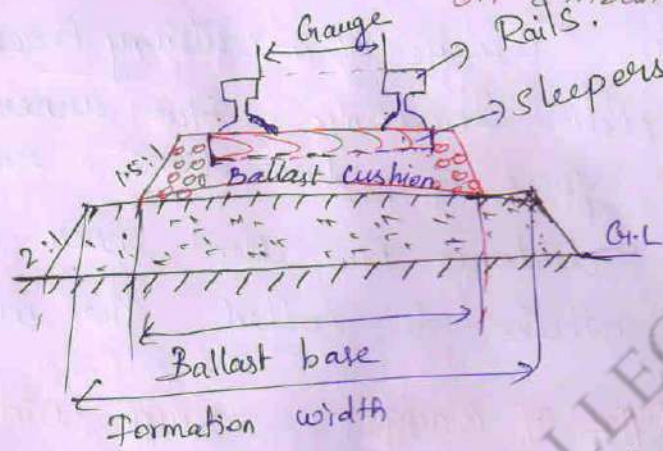 Gauge
Rails.
Sleepers
1.5:1
Ballast Cushion
2:1
G.L
Ballast base
Formation width